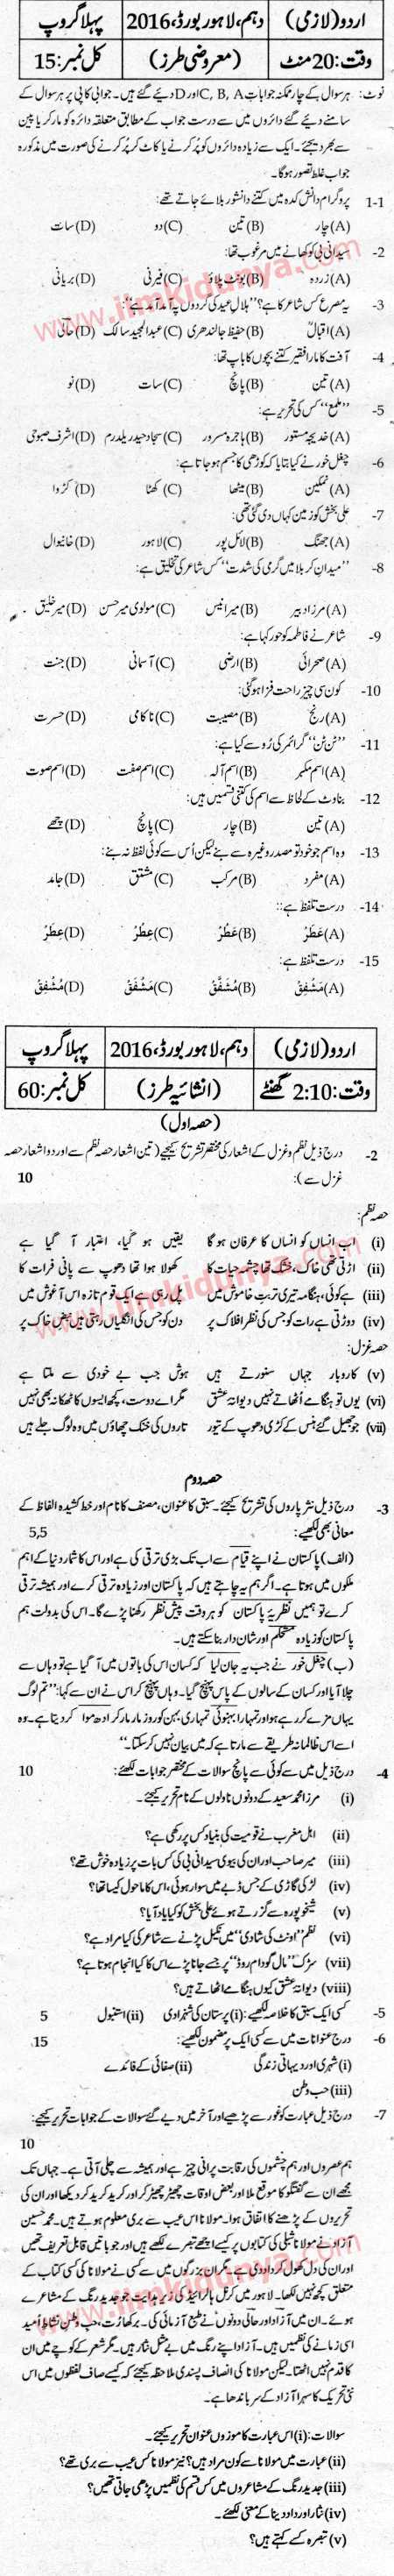 اردو (لازمی) دہم، لاہور بورڈ، 2016 پہلا گروپ
وقت: 20 منٹ (معروضی طرز) کل نمبر: 15
نوٹ: ہر سوال کے چار ممکنہ جوابات C, B, A اور D دیے گئے ہیں۔ جوابی کاپی پر ہر سوال کے
سامنے دیے گئے دائروں میں سے درست جواب کے مطابق متعلقہ دائرہ کو مارکر یا پین
سے بھر دیجئے۔ ایک سے زیادہ دائروں کو پُر کرنے یا کاٹ کر پُر کرنے کی صورت میں مذکورہ
جواب غلط تصور ہوگا۔
1-1 پروگرام دانش کدہ میں کتنے دانشور بلائے جاتے تھے:
(A) چار (B) تین (C) دو (D) سات
-2 سیدانی بی کو کھانے میں مرغوب تھا:
(A) زردہ (B) بونٹ پلاؤ (C) فیرنی (D) بریانی
-3 یہ مصرع کس شاعر کا ہے؟ "ہلالِ عید کی گردوں پہ آمد آمد ہے":
(A) اقبالؒ (B) حفیظ جالندھری (C) عبدالمجید سالک (D) حالی
-4 آفت کا مارا فقیر کتنے بچوں کا باپ تھا:
(A) تین (B) پانچ (C) سات (D) نو
-5 "ملمع" کس کی تحریر ہے:
(A) خدیجہ مستور (B) ہاجرہ مسرور (C) سجاد حیدر یلدرم (D) اشرف صبوحی
-6 چغل خور نے کیا بتایا کہ کوڑھی کا جسم ہو جاتا ہے:
(A) نمکین (B) میٹھا (C) کھٹا (D) کڑوا
-7 علی بخش کو زمین کہاں دی گئی تھی:
(A) جھنگ (B) لائل پور (C) لاہور (D) خانیوال
-8 "میدانِ کربلا میں گرمی کی شدت" کس شاعر کی تخلیق ہے:
(A) مرزا دبیر (B) میر انیس (C) مولوی میر حسن (D) میر خلیق
-9 شاعر نے فاطمہ کو حور کہا ہے:
(A) صحرائی (B) ارضی (C) آسمانی (D) جنت
-10 کون سی چیز راحت فزا ہو گئی:
(A) رنج (B) مصیبت (C) ناکامی (D) حسرت
-11 "ٹن ٹن" گرائمر کی رُو سے کیا ہے:
(A) اسم مکبر (B) اسم آلہ (C) اسم صفت (D) اسم صوت
-12 بناوٹ کے لحاظ سے اسم کی کتنی قسمیں ہیں:
(A) تین (B) چار (C) پانچ (D) چھے
-13 وہ اسم جو خود تو مصدر وغیرہ سے بنے لیکن اُس سے کوئی لفظ نہ بنے:
(A) مفرد (B) مرکب (C) مشتق (D) جامد
-14 درست تلفظ ہے::
(A) عَطَرْ (B) عَطْرْ (C) عِطْرْ (D) عِطَرْ
-15 درست تلفظ ہے:
(A) مَشْفِقْ (B) مُشَفَّقْ (C) مَشْفَقْ (D) مُشْفِقْ
اردو (لازمی) دہم، لاہور بورڈ، 2016 پہلا گروپ
وقت: 2:10 گھنٹے (انشائیہ طرز) کل نمبر: 60
(حصہ اول)
-2 درج ذیل نظم و غزل کے اشعار کی مختصر تشریح کیجیے (تین اشعار حصہ نظم سے اور دو اشعار حصہ
غزل سے): 10
حصہ نظم:
(i) اب انساں کو انساں کا عرفان ہو گا یقیں ہو گیا، اعتبار آ گیا ہے
(ii) اڑتی تھی خاک، خشک تھا چشمہ حیات کا کھولا ہوا تھا دھوپ سے پانی فرات کا
(iii) ہے کوئی، ہنگامہ تیری تربتِ خاموش میں پل رہی ہے ایک قومِ تازہ اس آغوش میں
(iv) دوڑتی ہے رات کو جس کی نظر افلاک پر دن کو جس کی انگلیاں رہتی ہیں نبضِ خاک پر
حصہ غزل:
(v) کاروبار جہاں سنورتے ہیں ہوش جب بے خودی سے ملتا ہے
(vi) یوں تو ہنگامے اُٹھاتے نہیں دیوانۂ عشق مگر اے دوست، کچھ ایسوں کا ٹھکانا بھی نہیں
(vii) جو جھیل گئے ہنس کے کڑی دھوپ کے تیور تاروں کی خنک چھاؤں میں وہ لوگ جلے ہیں
حصہ دوم
-3 درج ذیل نثرپاروں کی تشریح کیجئے۔ سبق کا عنوان، مصنف کا نام اور خط کشیدہ الفاظ کے
معانی بھی لکھیے: 5,5
(الف) پاکستان نے اپنے قیام سے اب تک بڑی ترقی کی ہے اور اس کا شمار دنیا کے اہم
ملکوں میں ہوتا ہے۔ اگر ہم یہ چاہتے ہیں کہ پاکستان اور زیادہ ترقی کرے اور ہمیشہ ترقی
کرے تو ہمیں نظریۂ پاکستان کو ہر وقت پیش نظر رکھنا پڑے گا۔ اس کی بدولت ہم
پاکستان کو زیادہ مستحکم اور شان دار بنا سکتے ہیں۔
(ب) چغل خور نے جب یہ جان لیا کہ کسان اس کی باتوں میں آ گیا ہے تو وہاں سے
چلا آیا اور کسان کے سالوں کے پاس پہنچ گیا۔ وہاں پہنچ کر اس نے ان سے کہا: "تم لوگ
یہاں مزے کر رہے ہو اور تمہارا بہنوئی تمہاری بہن کو روز مار مار کر ادھ موا کر دیتا ہے۔ وہ
اسے اس ظالمانہ طریقے سے مارتا ہے کہ میں بیان نہیں کر سکتا۔"
-4 درج ذیل میں سے کوئی سے پانچ سوالات کے مختصر جوابات لکھئے: 10
(i) مرزا محمد سعید کے دونوں ناولوں کے نام تحریر کیجئے۔
(ii) اہل مغرب نے قومیت کی بنیاد کس پر رکھی ہے؟
(iii) میر صاحب اور ان کی بیوی سیدانی بی کی کس بات پر زیادہ خوش تھے؟
(iv) لڑکی گاڑی کے جس ڈبے میں سوار ہوئی، اس کا ماحول کیسا تھا؟
(v) شیخوپورہ سے گزرتے ہوئے علی بخش کو کیا یاد آیا؟
(vi) نظم "اونٹ کی شادی" میں نکیل پڑنے سے شاعر کی کیا مراد ہے؟
(vii) سڑک "مال گودام روڈ" پر جسے جانا پڑے اس کا کیا انجام ہوتا ہے؟
(viii) دیوانۂ عشق کیوں ہنگامے اٹھاتے ہیں؟
-5 کسی ایک سبق کا خلاصہ لکھیے: (i) پرستان کی شہزادی (ii) استنبول 5
-6 درج عنوانات میں سے کسی ایک پر مضمون لکھیے: 15
(i) شہری اور دیہاتی زندگی (ii) صفائی کے فائدے
(iii) حب وطن
-7 درج ذیل عبارت کو غور سے پڑھیے اور آخر میں دیے گئے سوالات کے جوابات تحریر کیجیے:
10
ہم عصروں اور ہم چشموں کی رقابت پرانی چیز ہے اور ہمیشہ سے چلی آتی ہے۔ جہاں تک
مجھے ان سے گفتگو کا موقع ملا اور بعض اوقات چھیڑ چھیڑ کر اور کرید کرید کر دیکھا اور ان کی
تحریروں کے پڑھنے کا اتفاق ہوا۔ مولانا اس عیب سے بری معلوم ہوتے ہیں۔ محمد حسین
آزاد نے مولانا شبلی کی کتابوں پر کیسے اچھے تبصرے لکھے ہیں اور جو باتیں قابل تعریف تھیں
اور ان کی دل کھول کر داد دی ہے۔ مگر ان بزرگوں میں سے کسی نے مولانا کی کسی کتاب کے
متعلق کچھ نہیں لکھا۔ لاہور میں کرنل ہالرائیڈ کی زیر ہدایت جو جدید رنگ کے مشاعرے
ہوئے۔ ان میں آزاد اور حالی دونوں نے طبع آزمائی کی۔ برکھا رُت، حب وطن نشاطِ اُمید
اسی زمانے کی نظمیں ہیں۔ آزاد اپنے رنگ میں بے مثل نثار ہیں۔ مگر شعر کے کوچے میں ان
کا قدم نہیں اٹھتا۔ لیکن مولانا کی انصاف پسندی ملاحظہ کیجئے کہ کیسے صاف لفظوں میں اس
نئی تحریک کا سہرا آزاد کے سر باندھا ہے۔
سوالات: (i) اس عبارت کا موزوں عنوان تحریر کیجئے۔
(ii) عبارت میں مولانا سے کون مراد ہیں؟ نیز مولانا کس عیب سے بری تھے؟
(iii) جدید رنگ کے مشاعروں میں کس قسم کی نظمیں پڑھی جاتی تھیں؟
(iv) نثار اور داد دینا کے معنی لکھئے۔
(v) تبصرہ کسے کہتے ہیں؟
www.ilmkidunya.com